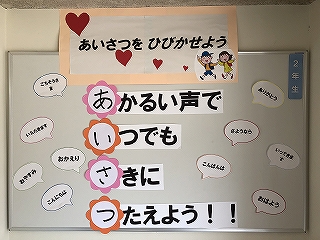 あいさつを ひびかせよう
2年生
あかるい声で
いつでも
さきに
つたえよう！！
ごちそうさま
いただきます
おかえり
おやすみ
こんにちは
ありがとう
さようなら
いってきます
こんばんは
おはよう